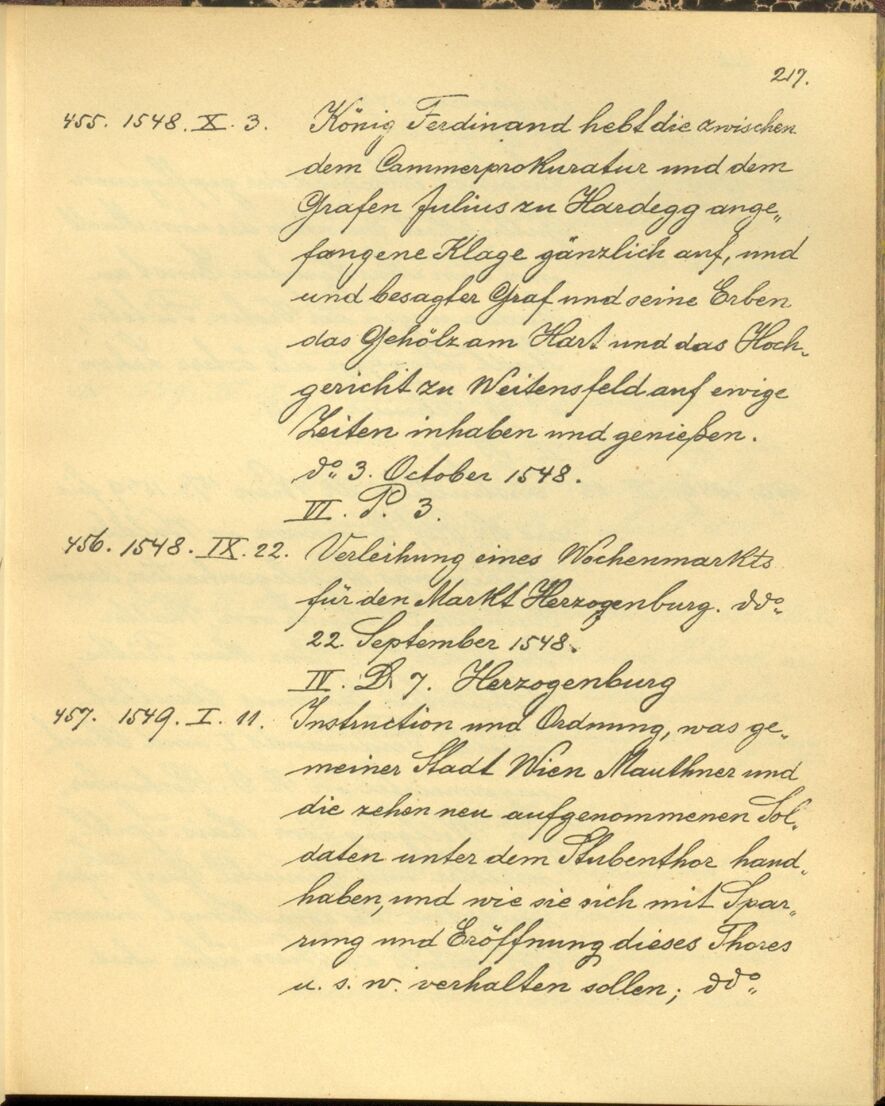 217.
455. 1548. X. 3. König Ferdinand hebt die zwischen
dem Cammerprokuratur und dem
Grafen Julius zu Hardegg ange„
fangene Klage gänzlich auf, und
und besagter Graf und seine Erben
das Gehölz am Hart und das Hoch„
gericht zu Weitensfeld auf ewige
Zeiten inhaben und genießen.
do„ 3. October 1548.
VI. P. 3.
456. 1548. IX. 22. Verleihung eines Wochenmarkts
für den Markt Herzogenburg. ddo„
22. September 1548.
IV. D. 7. Herzogenburg
457. 1549. I. 11. Instruction und Ordnung, was ge„
meiner Stadt Wien Mauthner und
die zehen neu aufgenommenen Sol„
daten unter dem Stubenthor hand„
haben, und wie sie sich mit Spar„
rung und Eröffnung dieses Thores
u. s. w. verhalten sollen; ddo„